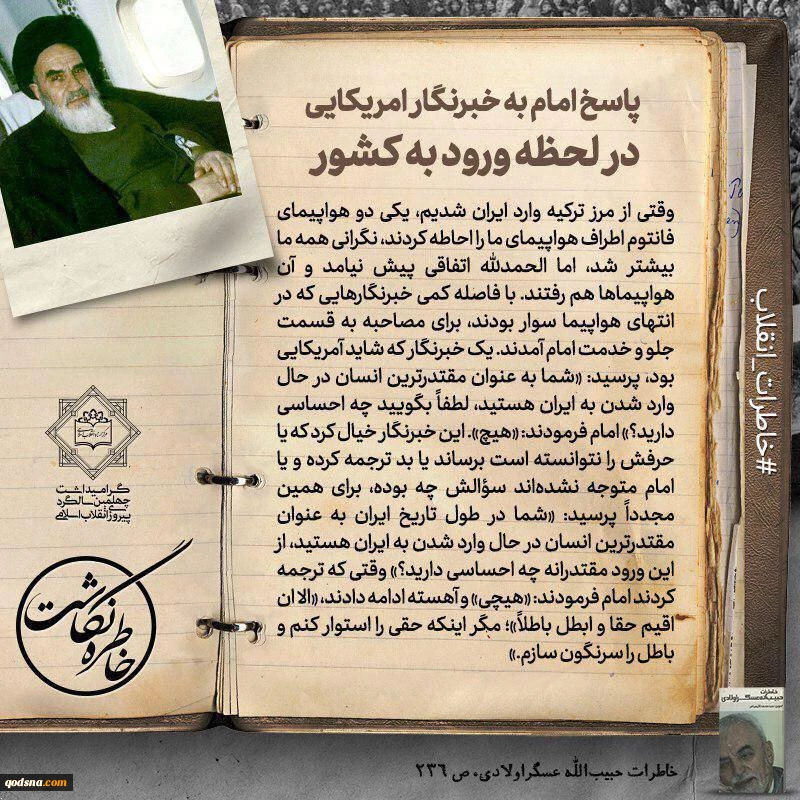 پاسخ امام به خبرنگار امریکایی
در لحظه ورود به کشور
وقتی از مرز ترکیه وارد ایران شدیم، یکی دو هواپیمای
فانتوم اطراف هواپیمای ما را احاطه کردند، نگرانی همه ما
بیشتر شد، اما الحمدلله اتفاقی پیش نیامد و آن
هواپیماها هم رفتند. با فاصله کمی خبرنگارهایی که در
انتهای هواپیما سوار بودند، برای مصاحبه به قسمت
جلو و خدمت امام آمدند. یک خبرنگار که شاید آمریکایی
بود، پرسید: «شما به عنوان مقتدرترین انسان در حال
وارد شدن به ایران هستید، لطفاً بگویید چه احساسی
دارید؟» امام فرمودند: «هیچ». این خبرنگار خیال کرد که یا
حرفش را نتوانسته است برساند یا بد ترجمه کرده و یا
امام متوجه نشده‌اند سؤالش چه بوده، برای همین
مجدداً پرسید: «شما در طول تاریخ ایران به عنوان
مقتدرترین انسان در حال وارد شدن به ایران هستید، از
این ورود مقتدرانه چه احساسی دارید؟» وقتی که ترجمه
کردند امام فرمودند: «هیچی» و آهسته ادامه دادند، «الا ان
اقیم حقا و ابطل باطلاً»؛ مگر اینکه حقی را استوار کنم و
باطل را سرنگون سازم.»
#خاطرات_انقلاب
گرامیداشت
چهلمین سالگرد
پیروزی انقلاب اسلامی
خاطره نگاشت
خاطرات
حبیب‌الله عسگراولادی
خاطرات حبیب‌الله عسگراولادی، ص ۲۳۶
qodsna.com